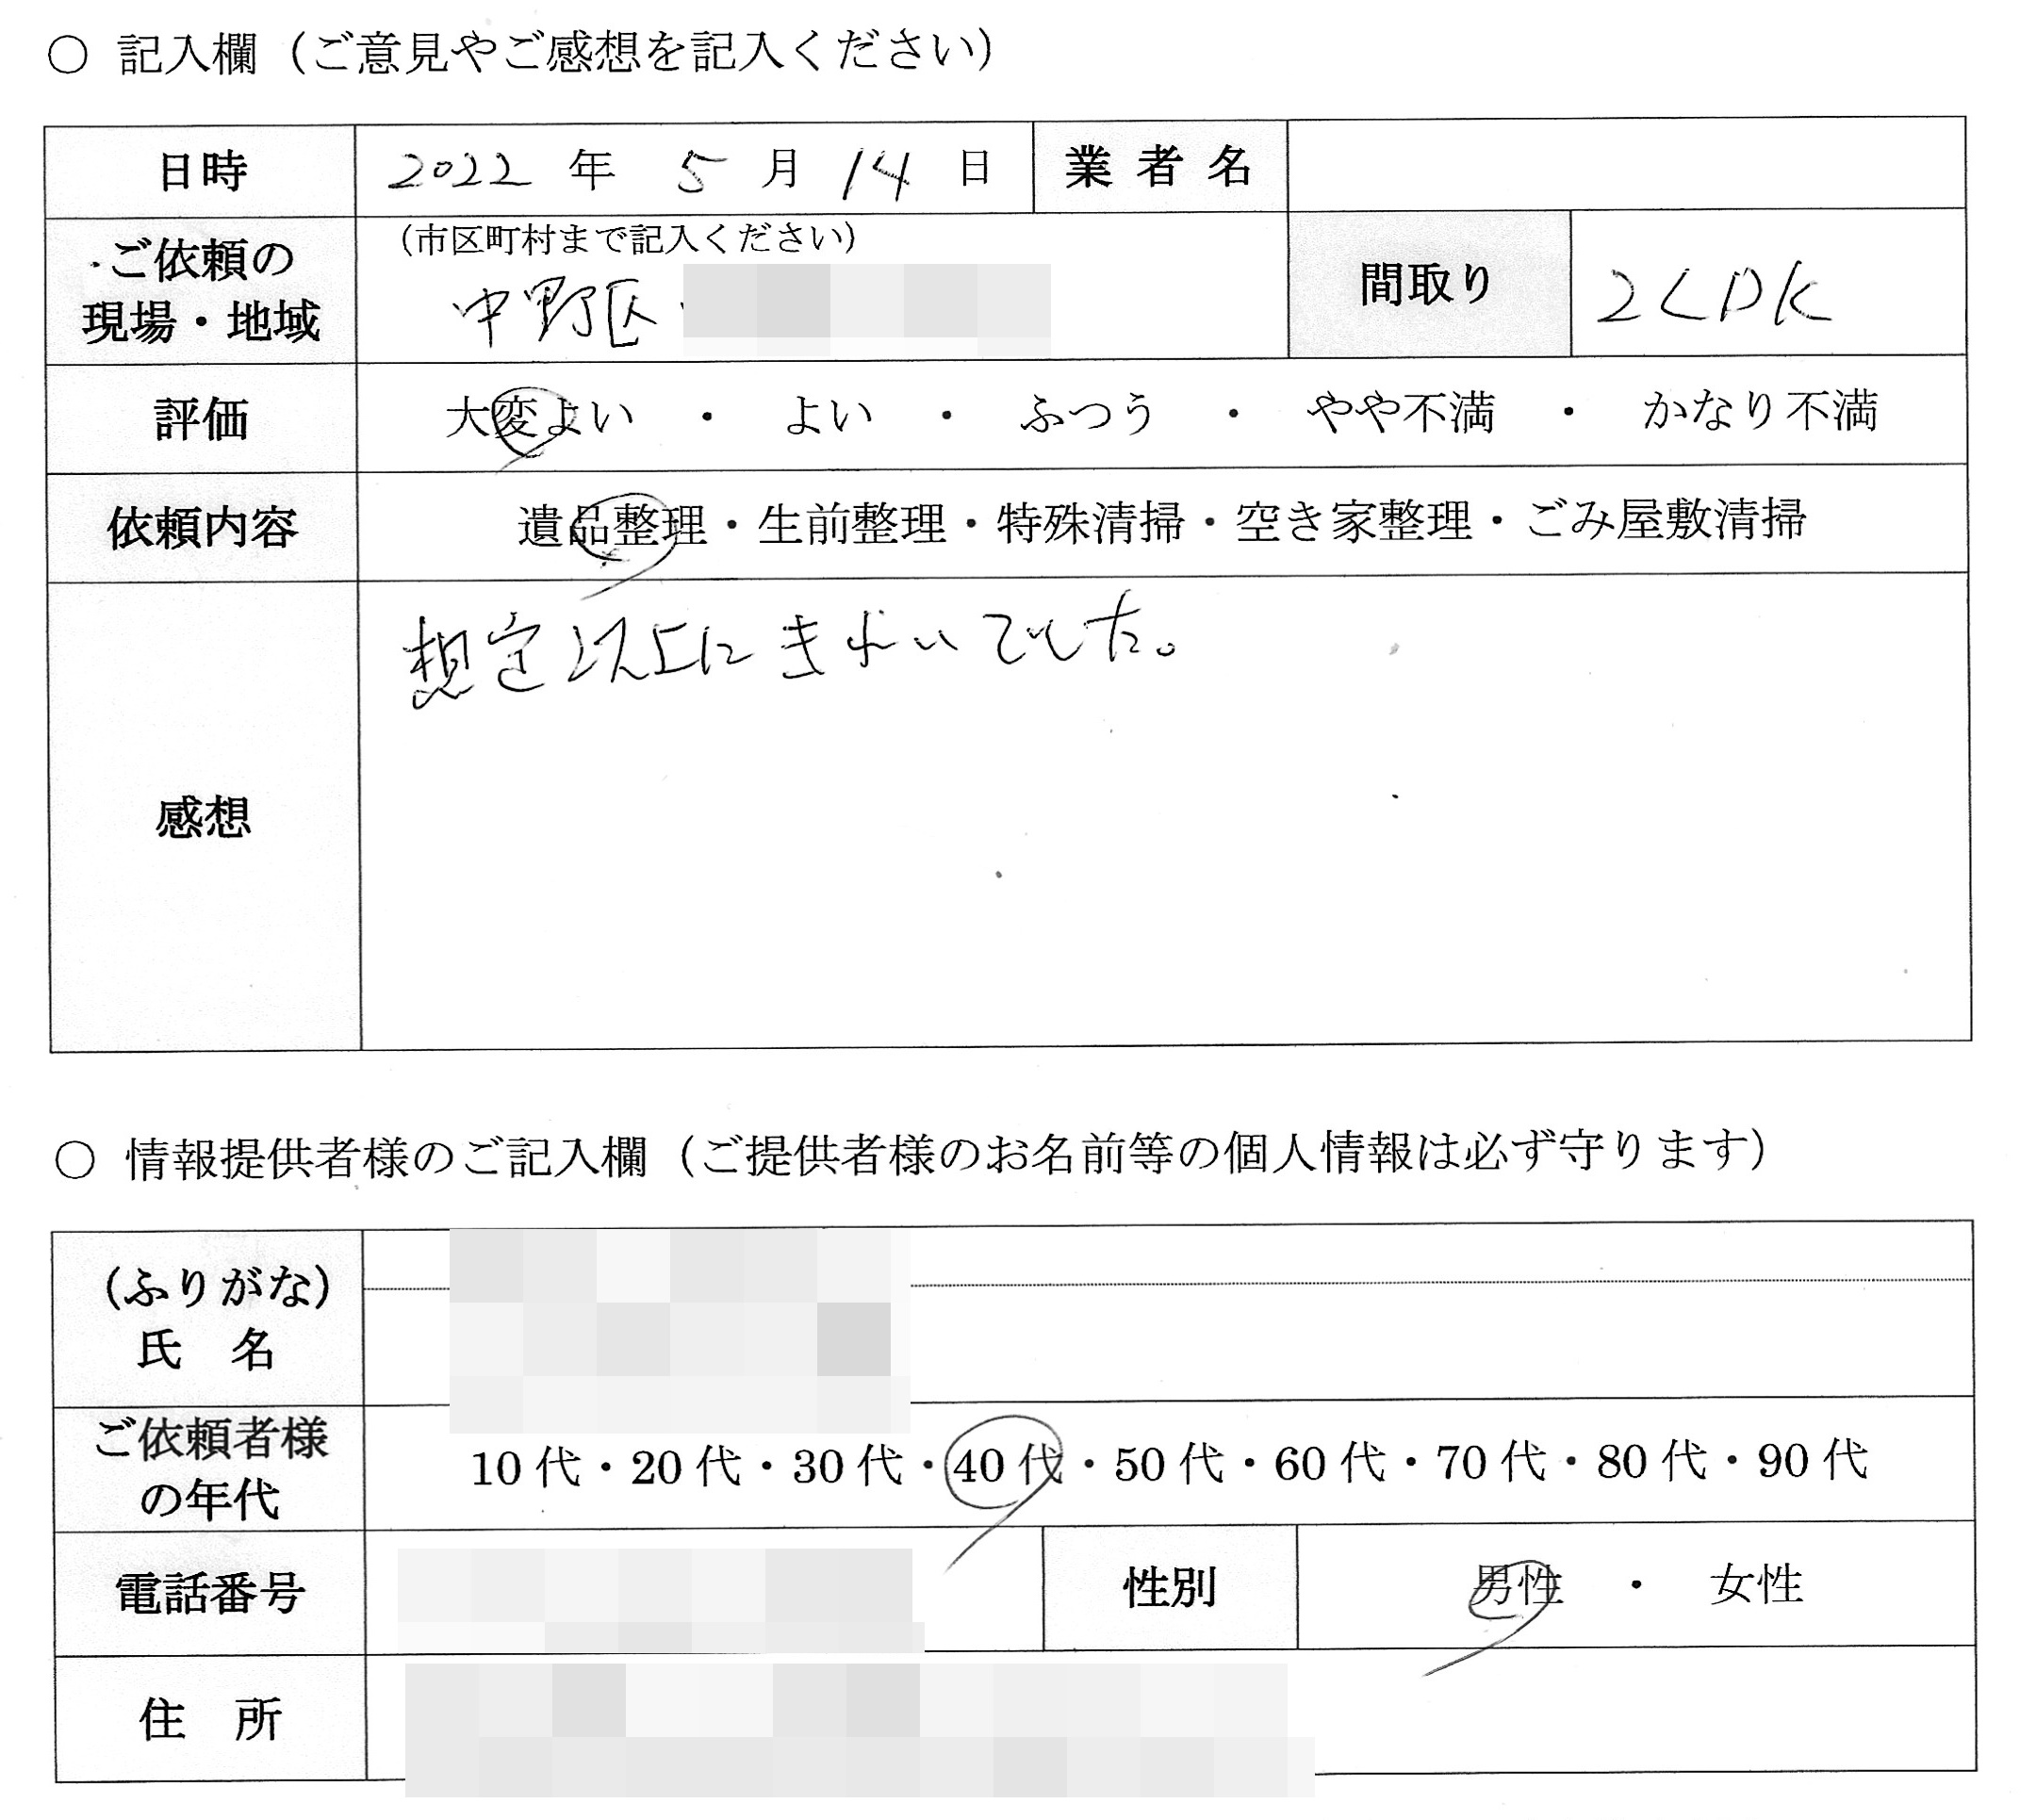 ○ 記入欄（ご意見やご感想を記入ください）
日時 2022 年 5 月 14 日 業者名
ご依頼の
現場・地域
（市区町村まで記入ください）
中野区
間取り 2LDK
評価 大変よい ・ よい ・ ふつう ・ やや不満 ・ かなり不満
依頼内容 遺品整理・生前整理・特殊清掃・空き家整理・ごみ屋敷清掃
感想 想定以上にきれいでした。
○ 情報提供者様のご記入欄（ご提供者様のお名前等の個人情報は必ず守ります）
（ふりがな）
氏 名
ご依頼者様
の年代
10代・20代・30代・40代・50代・60代・70代・80代・90代
電話番号 性別 男性 ・ 女性
住 所